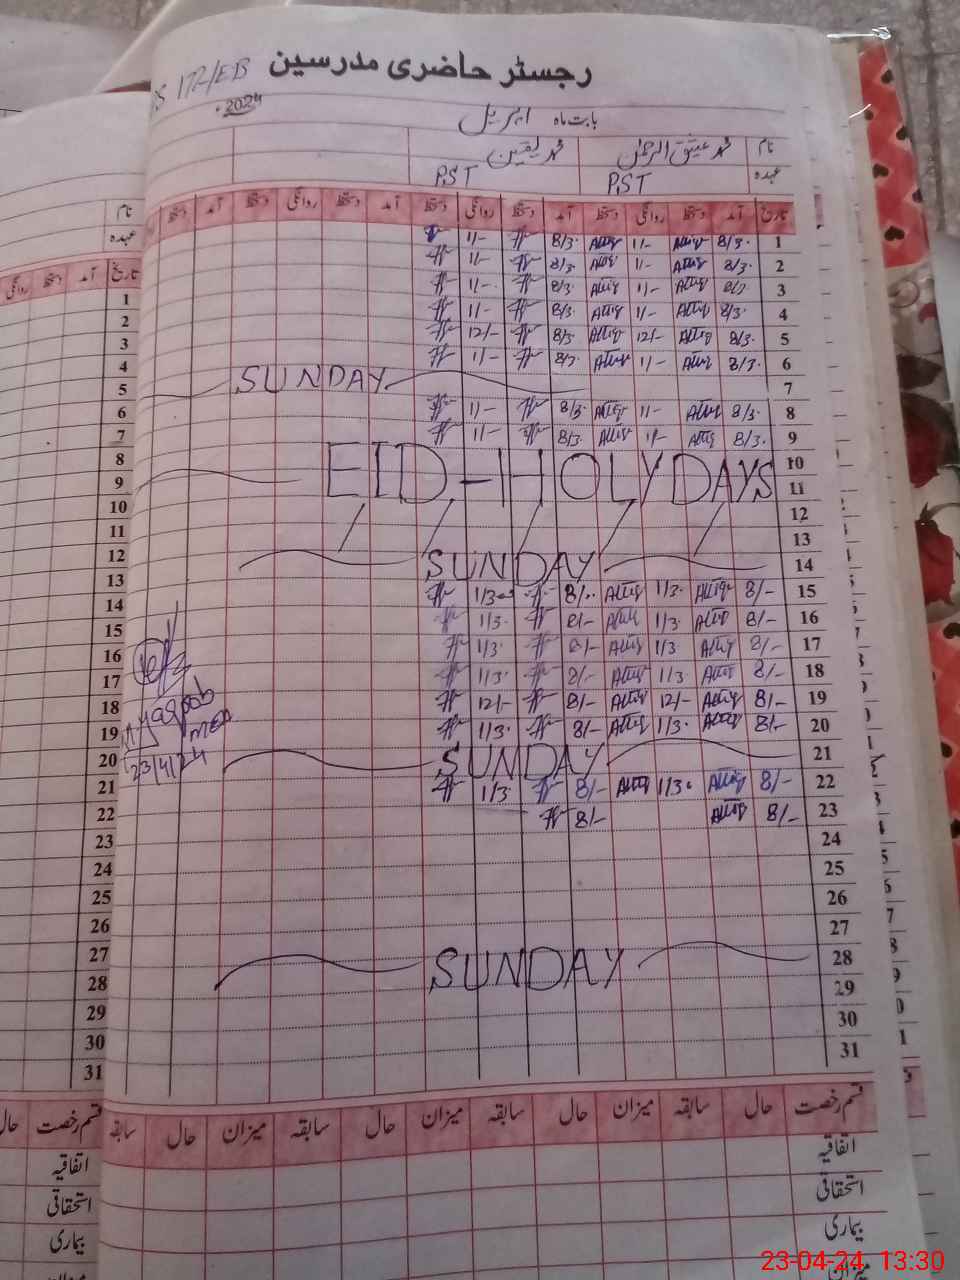 PS 177-/EB رجسٹر حاضری مدرسین
2024
بابت ماہ اپریل
نام محمد عتیق الرحمٰن محمد یقین
عہدہ PST PST
تاریخ آمد دستخط روانگی دستخط آمد دستخط روانگی دستخط آمد دستخط روانگی دستخط آمد دستخط
1 8/3. Attiq 1/- Attiq 8/3. 1/-
2 8/3. Attiq 1/- Attiq 8/3. 1/-
3 8/3. Attiq 1/- Attiq 8/3. 1/-
4 8/3. Attiq 1/- Attiq 8/3. 1/-
5 8/3. Attiq 12/- Attiq 8/3 12/-
6 8/3. Attiq 1/- Attiq 8/3. 1/-
7 SUNDAY
8 8/3. Attiq 1/- Attiq 8/3. 1/-
9 8/3. Attiq 1/- Attiq 8/3. 1/-
10
11 EID-HOLYDAYS
12
13
14 SUNDAY
15 8/- Attiq 1/3. Attiq 8/- 1/3
16 8/- Attiq 1/3. Attiq 8/- 1/3.
17 8/- Attiq 1/3 Attiq 8/- 1/3.
18 8/- Attiq 1/3 Attiq 8/- 1/3.
19 8/- Attiq 12/- Attiq 8/- 12/-
20 8/- Attiq 1/3. Attiq 8/- 1/3.
21 SUNDAY
22 8/- Attiq 1/3. Attiq 8/- 1/3.
23 8/- Attiq 8/-
24
25
26
27
28 SUNDAY
29
30
31
M Yaqoob
MEA
23/4/24
قسم رخصت حال سابقہ میزان حال سابقہ میزان حال سابقہ میزان حال سابقہ
اتفاقیہ
استحقاقی
بیماری
میزان
نام
عہدہ
تاریخ آمد دستخط روانگی
1
2
3
4
5
6
7
8
9
10
11
12
13
14
15
16
17
18
19
20
21
22
23
24
25
26
27
28
29
30
31
قسم رخصت حال
اتفاقیہ
استحقاقی
بیماری
23-04-24 13:30